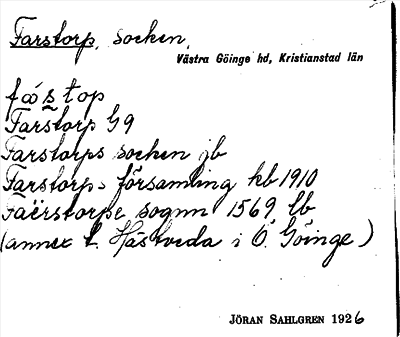 Farstorp, socken,
Västra Göinge hd, Kristianstad län
fá s̱ top
Farstorp G9
Farstorps socken jb
Farstorps församling kb 1910
Faërstorpe sognn 1569 lb
(annex t. Hästveda i Ö. Göinge)
JÖRAN SAHLGREN 1926